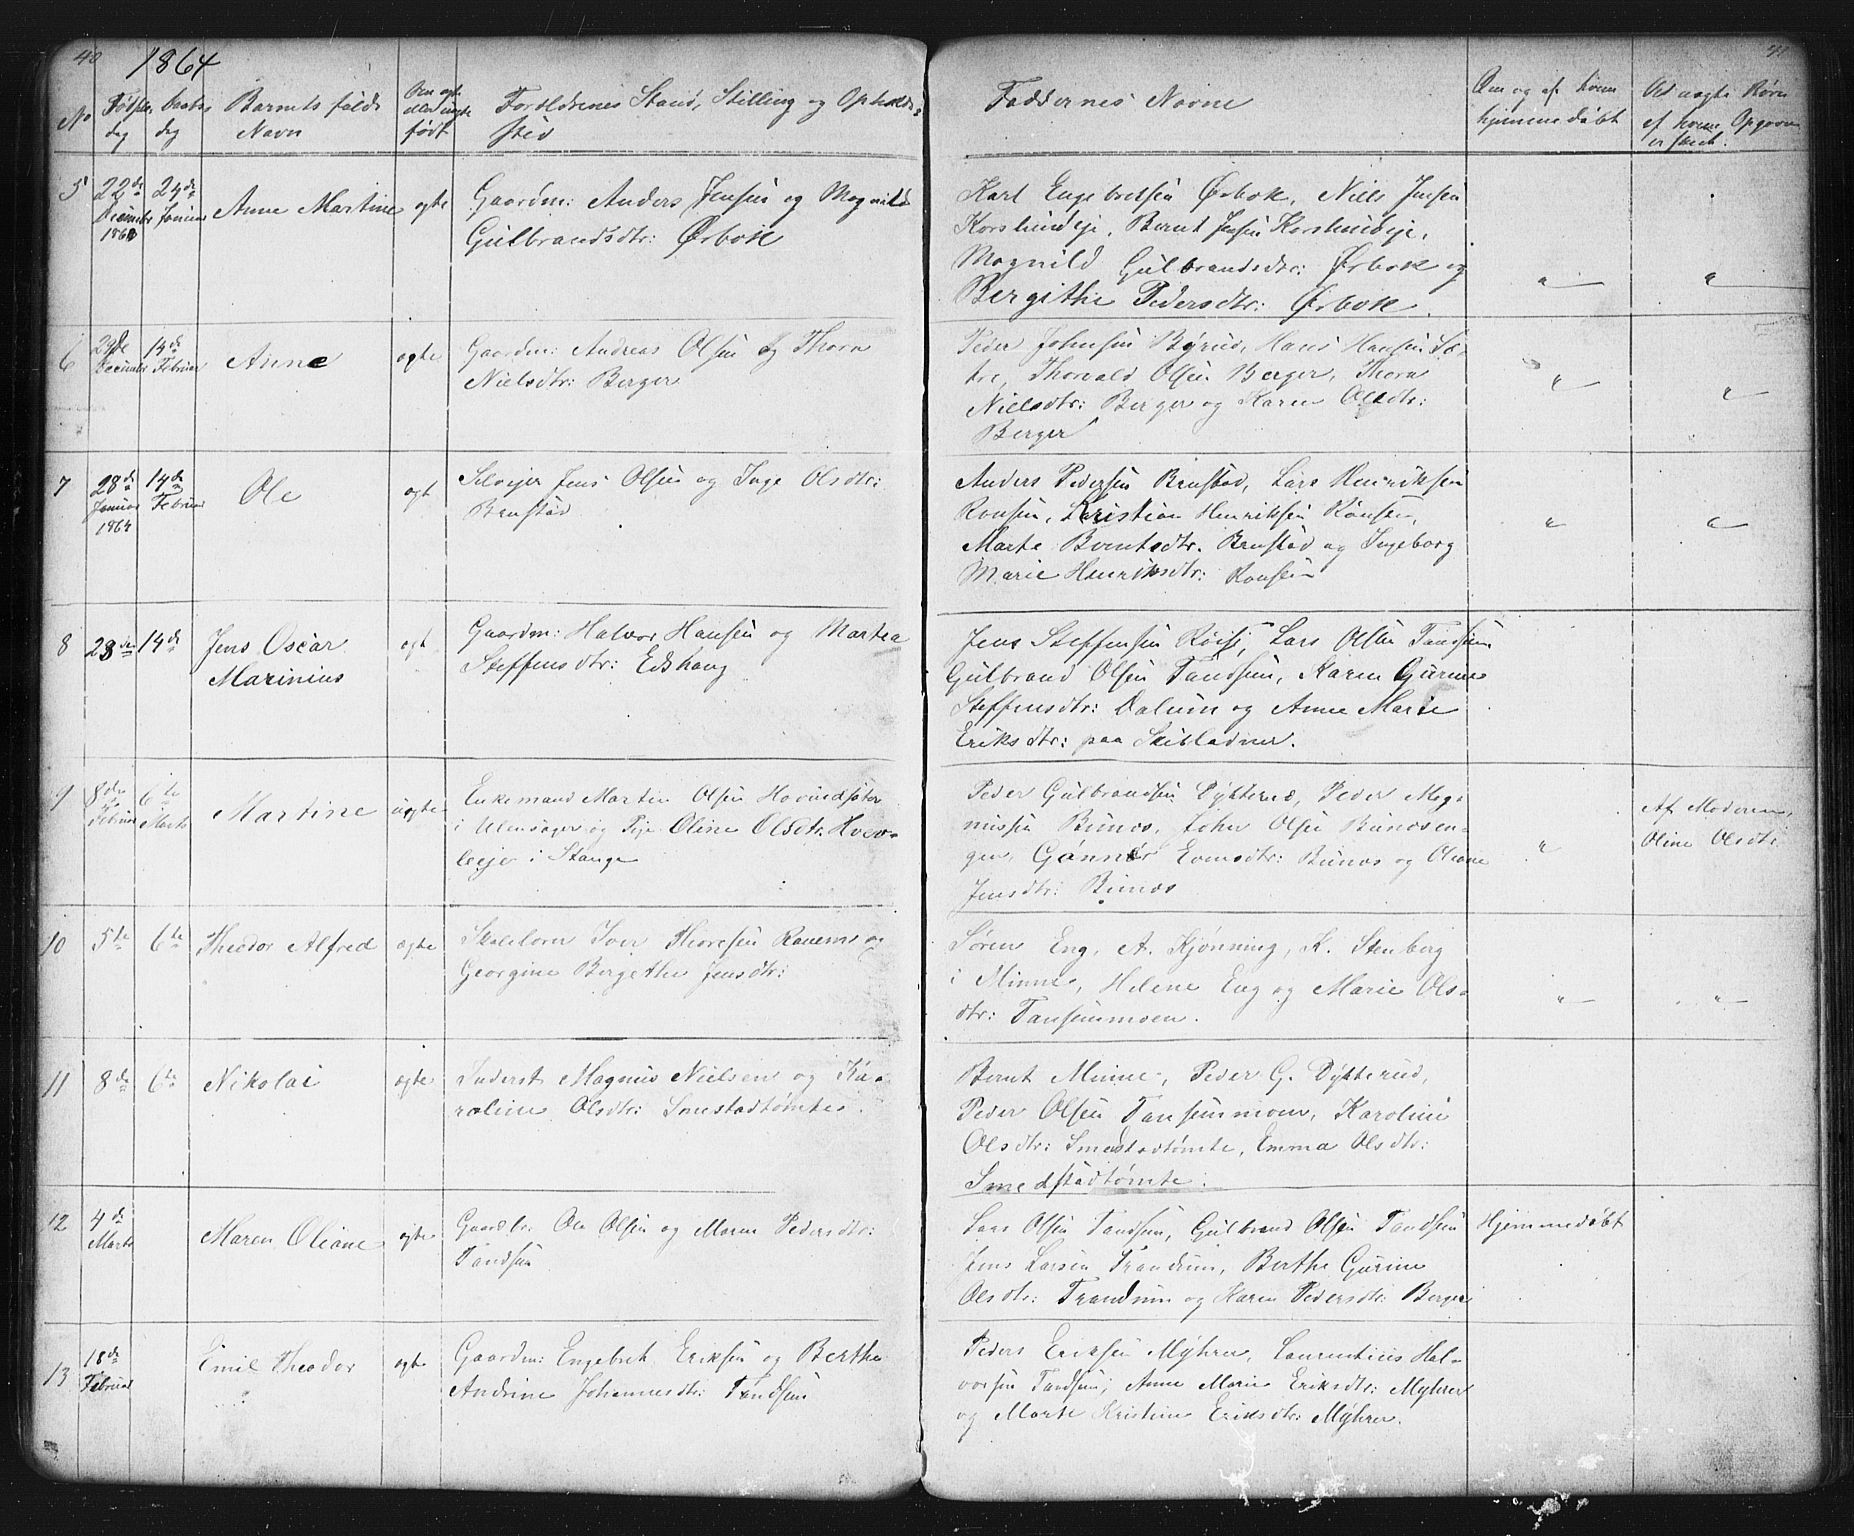 40
1864
41
No
Fødsels Daabs Barnets fulde
dag dag Navn
Om ægte
eller uægte
født
Forældrenes Stand, Stilling og Opholds
sted
Faddernes Navne
Om og af hvem
hjemmedøbt
Ved uægte Børn
af hvem Opgaven
er skeet.
5 22de 24de
December Januar Anne Martine ægte
Gaardm: Anders Jensen og Magnild
Gulbrandsdtr: Ørbæk
Karl Engebretsen Ørbæk, Niels Jensen
Korslundeje, Bernt Jensen Korslundeje,
Magnild Gulbrandsdtr: Ørbæk og
Bergithe Pedersdtr: Ørbæk.
" "
6 29de 14de
December Februar Anne ægte
Gaardm: Andreas Olsen og Thora
Nielsdtr: Berger
Peder Johnsen Byrud, Hans Hansen Sæ-
tre, Thorvald Olsen Berger, Thora
Nielsdtr: Berger og Karen Olsdtr:
Berger
" "
7 28de 14de
Januar Februar
1864
Ole ægt
Selvejer Jens Olsen og Inge Olsdtr:
Brustad
Anders Pedersen Brustad, Lars Henriksen
Ronsen, Kristian Henriksen Ronsen,
Marte Berntsdtr. Brustad og Ingeborg
Marie Henriksdtr: Ronsen
" "
8 23de 14de Jens Oscar
Marinius
ægt
Gaardm: Halvor Hansen og Marthea
Steffensdtr: Edshaug
Jens Steffensen Røise, Lars Olsen Tandsem
Gulbrand Olsen Tandsem, Karen Gurine
Steffensdtr: Dalum og Anne Marie
Eriks dtr: paa Skibladner.
9 8de 6te
Februar Marts Martine uægte
Enkemand Martin Olsen Hovindsæter
i Ulensager og Pige Oline Olsdtr:
i Stange
Peder Gulbrandsen Dytterud, Peder Mag-
nussen Bunæs, Johan Olsen Bunæsen-
gen, Gunnor Evensdtr: Bunæs og Oleane
Jensdtr: Bunæs
"
Af Moderen,
Oline Olsdtr.
10 5te 6te Theodor Alfred ægte
Skolelærer Iver Thoresen Ranem og
Georgine Bergethe Jensdtr:
Søren Eng, A. Kjønning, K. Stenberg
i Minne, Helene Eng og Marie Ols-
dtr: Tansemmoen.
" "
11 8de 6te Nikolai ægte
Inderst Magnus Nielsen og Ka-
roline Olsdtr: Smestadtømte.
Bernt Minne, Peder G. Dytterud,
Peder Olsen Tansemmoen, Karoline
Olsdtr: Smestadtømte, Emma Olsdtr:
Smedstadtømte.
12 4de
Marts Maren Oliane ægte
Gaardbr: Ole Olsen og Maren Pedersdtr:
Tandsem
Lars Olsen Tandsem, Gulbrand Olsen Tandsem
Jens Larsen Trandum, Berthe Gurine
Olsdtr: Trandum og Karen Pedersdtr: Berger
Hjemmedøbt
13 18de
Februar Emil Theodor ægte
Gaardm: Engebret Eriksen og Berthe
Andrine Johannesdtr: Tandsem
Peder Eriksen Myhrer, Laurentius Hal-
vorsen Tandsem, Anne Marie Eriksdtr: Myhrer
og Marte Kristine Eriksdtr: Myhrer.